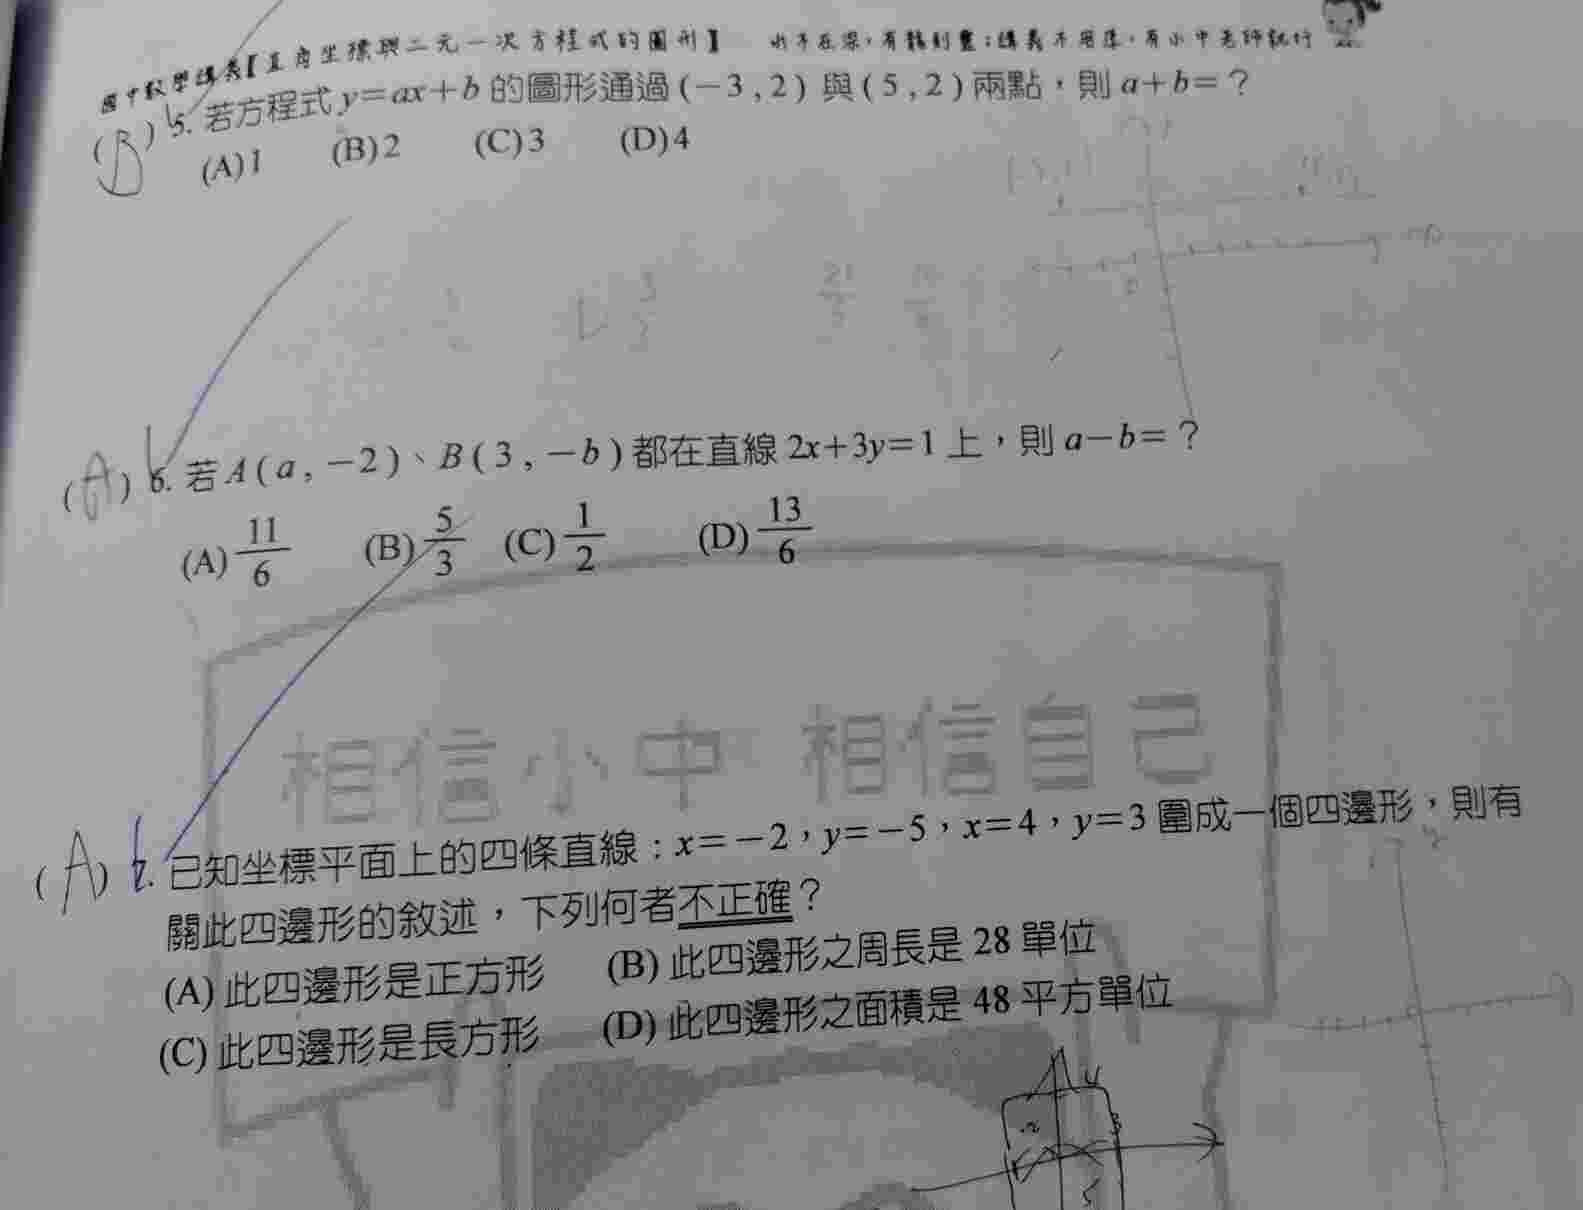 國中數學講義【直角坐標與二元一次方程式的圖形】
(B) 5. 若方程式 y=ax+b 的圖形通過 (-3,2) 與 (5,2) 兩點，則 a+b=？
(A)1 (B)2 (C)3 (D)4
(A) 6. 若 A(a,-2)、B(3,-b) 都在直線 2x+3y=1 上，則 a-b=？
(A) 11/6 (B) 5/3 (C) 1/2 (D) 13/6
相信小中 相信自己
(A) 7. 已知坐標平面上的四條直線：x=-2，y=-5，x=4，y=3 圍成一個四邊形，則有
關此四邊形的敘述，下列何者不正確？
(A) 此四邊形是正方形 (B) 此四邊形之周長是 28 單位
(C) 此四邊形是長方形 (D) 此四邊形之面積是 48 平方單位